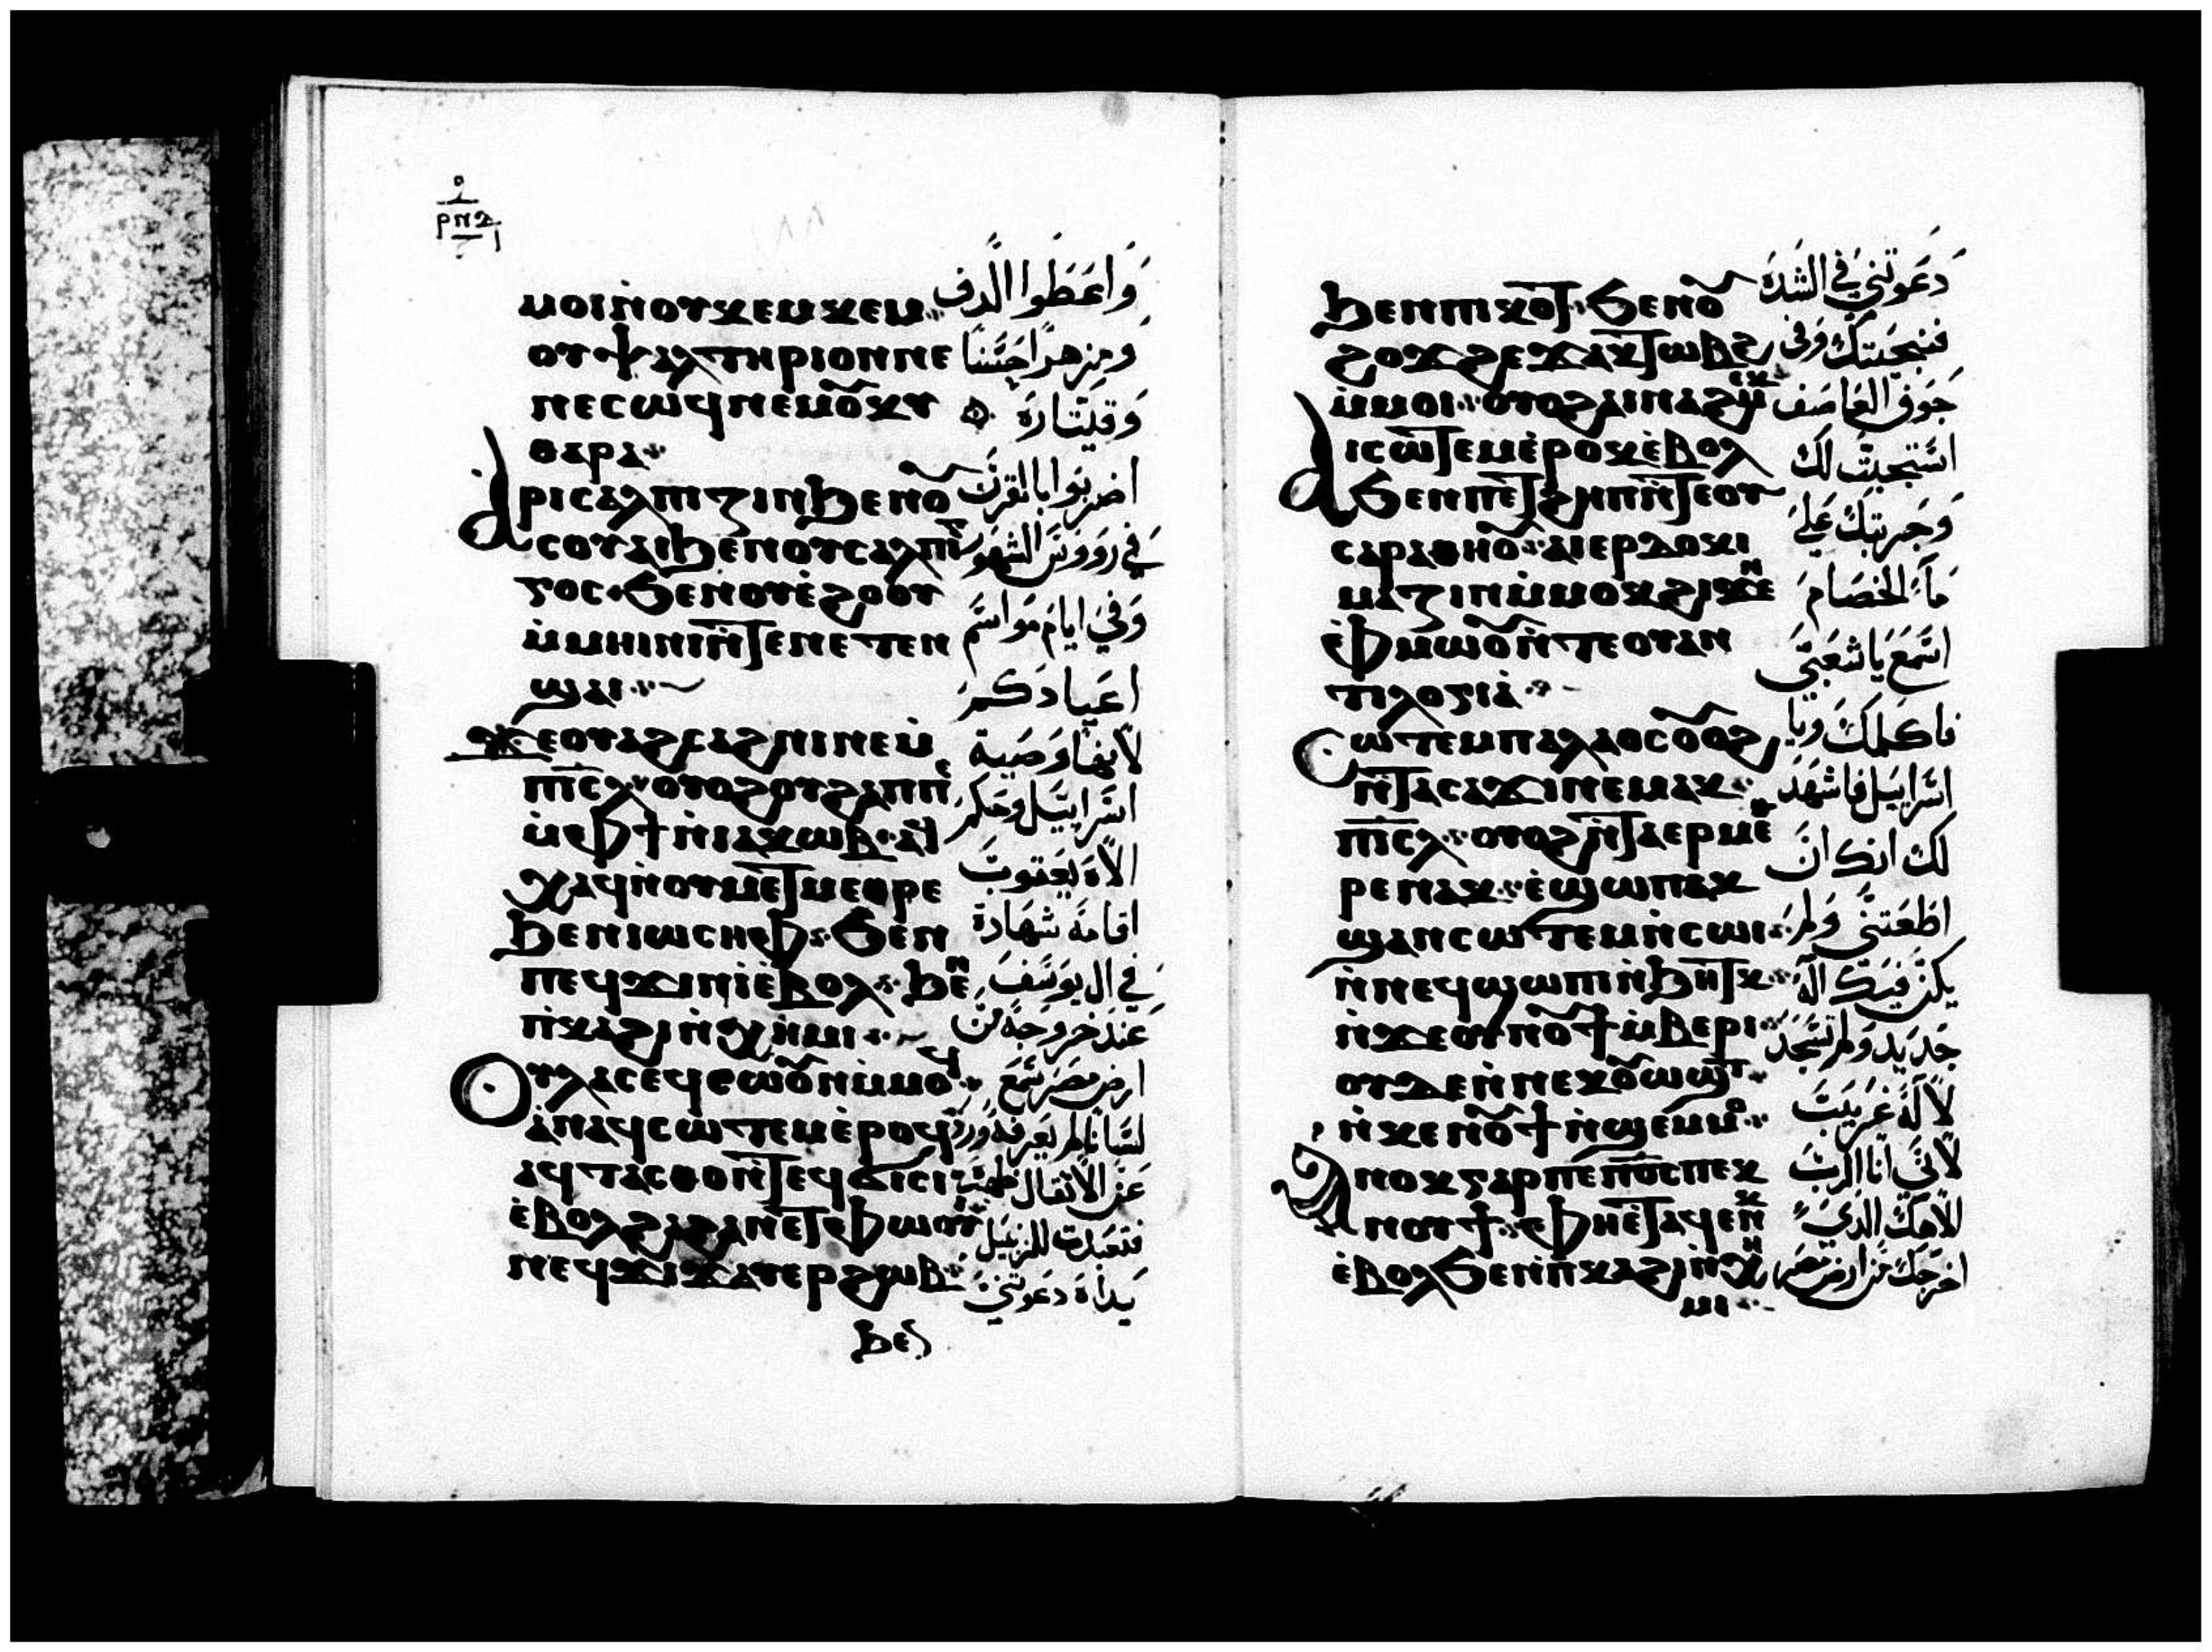 ⲣⲡⲇ
ⲙⲟⲓⲛ̀ⲟⲩⲕⲉⲙⲕⲉⲙ
ⲟⲩⲯⲁⲗⲧⲏⲣⲓⲟⲛⲛⲉ
ⲛⲉⲥⲱϥⲛⲉⲙⲟ̅ⲕⲩ
ⲑⲁⲣⲁ
ⲁⲣⲓⲥⲁⲗⲡⲓⲍⲓⲛϧⲉⲛⲟ̅
ⲥⲟⲩⲁⲓϧⲉⲛⲟⲩⲥⲁⲗⲡⲓⲛ
ⲅⲟⲥ ϧⲉⲛⲟⲩⲉ̀ϩⲟⲟⲩ
ⲙ̀ⲙⲏⲓⲛⲓⲛ̀ⲧⲉⲛⲉⲧⲉⲛ
ϣⲁⲓ
ϫⲉⲟⲩⲁϩⲥⲁϩⲛⲓⲛⲉⲙ̀
ⲡⲓ̅ⲥ̅ⲗ̅ ⲟⲩⲟϩⲟⲩϩⲁⲡⲡⲉ
ⲙ̀ⲫϯⲛ̀ⲓⲁⲕⲱⲃ ⲁϥ
ⲭⲁϥⲛⲟⲩⲙⲉⲧⲙⲉⲑⲣⲉ
ϧⲉⲛⲓⲱⲥⲏⲫ ϧⲉⲛ
ⲡⲉϥϫⲓⲛⲓ̀ⲉⲃⲟⲗ ϧⲉⲛ
ⲡ̀ⲕⲁϩⲓⲛ̀ⲭⲏⲙⲓ
ⲟⲩⲗⲁⲥⲉϥⲥⲱⲟ̅ⲛⲙ̀ⲙⲟϥ
ⲁ̀ⲛⲁϥⲥⲱⲧⲉⲙⲉ̀ⲣⲟϥ
ⲁϥⲧⲁⲥⲑⲟⲛ̀ⲧⲉϥϭⲓⲥⲓ
ⲉ̀ⲃⲟⲗϩⲁϩⲁⲛⲉⲧⲫⲱⲟⲩ
ⲛⲉϥϫⲓϫⲁⲩⲉⲣϩⲱⲃ
ϧⲉⲛ
وَاعَطوا الدف
ومزمرًا حسَنًا
وَقيتَارَة
اضربوا بالقرن
في رووس الشهور
وَفي ايام مَواسم
اعيادكم
لانها وَصَية
اسراييل وحكم
الاه يَعقوب
اقامَه شهَادة
في ال يوسف
عند خروجه من
ارض مصر سَمع
لسَانًا لم يَعرفه
عن الاثقال
يَداه
ϧⲉⲛⲡⲓϩⲟϫ ϧⲉⲛⲟ̅
ϩⲟϫϩⲉϫⲁⲕⲧⲱⲃϩ
ⲙ̀ⲙⲟⲓ ⲟⲩⲟϩⲁⲓⲛⲁϩⲙⲉⲕ
ⲁⲓⲥⲱⲧⲉⲙⲉ̀ⲣⲟⲕⲉ̀ⲃⲟⲗ
ϧⲉⲛⲡⲉⲧϩⲏⲡⲛ̀ⲧⲉⲟⲩ
ⲥⲁⲣⲁⲑⲏⲟ̅ ⲁⲓⲉⲣⲇⲟⲕⲓ
ⲙⲁⲍⲓⲛⲙ̀ⲙⲟⲕϩⲓϫⲉⲛ
ⲉ̀ⲫⲙⲱⲟ̅ⲛ̀ⲧⲉⲟⲩⲁⲛ
ⲧⲓⲗⲟⲅⲓⲁ̀
ⲥⲱⲧⲉⲙⲡⲁⲗⲁⲟⲥⲟ̅ⲟϩ
ⲛ̀ⲧⲁⲥⲁϫⲓⲛⲉⲙⲁⲕ
ⲡⲓ̅ⲥ̅ⲗ̅ ⲟⲩⲟϩⲛ̀ⲧⲁⲉⲣⲙⲉⲑ
ⲣⲉⲛⲁⲕ ⲉ̀ϣⲱⲡⲁⲕ
ϣⲁⲛⲥⲱⲧⲉⲙⲛ̀ⲥⲱⲓ
ⲛ̀ⲛⲉϥϣⲱⲡⲓⲛ̀ϧⲏⲧⲕ
ⲛ̀ϫⲉⲟⲩⲛⲟ̅ϯⲙ̀ⲃⲉⲣⲓ
ⲟⲩⲇⲉⲛ̀ⲛⲉⲕⲟ̅ⲱϣⲧ
ⲛ̀ⲕⲉⲛⲟ̅ϯⲛ̀ϣⲉⲙⲙⲟ
ⲁⲛⲟⲕⲅⲁⲣⲡⲉⲡⲟ̅ⲥ̅ⲡⲉⲕ
ⲛⲟⲩϯ ⲫⲏⲉⲧⲁϥⲉⲛⲕ
ⲉ̀ⲃⲟⲗϧⲉⲛⲡ̀ⲕⲁϩⲓⲛ̀ⲭⲏ
ⲙⲓ
دَعوتني في الشدَة
فنجيتك وَفي
جَوف العَاصَف
استجبت لك
وَجربتك عَلى
مَآ الخصَام
اسمَع يَا شعَبي
فاكلمك ويَا
اسراييل فاشهَد
لك انك ان
اطَعتني وَلم
يكن فيك اله
جَديد وَلم تسجد
لاله غَريبَ
لاني انا الربَ
الاهك الذي
اخرجك من ارض مصر